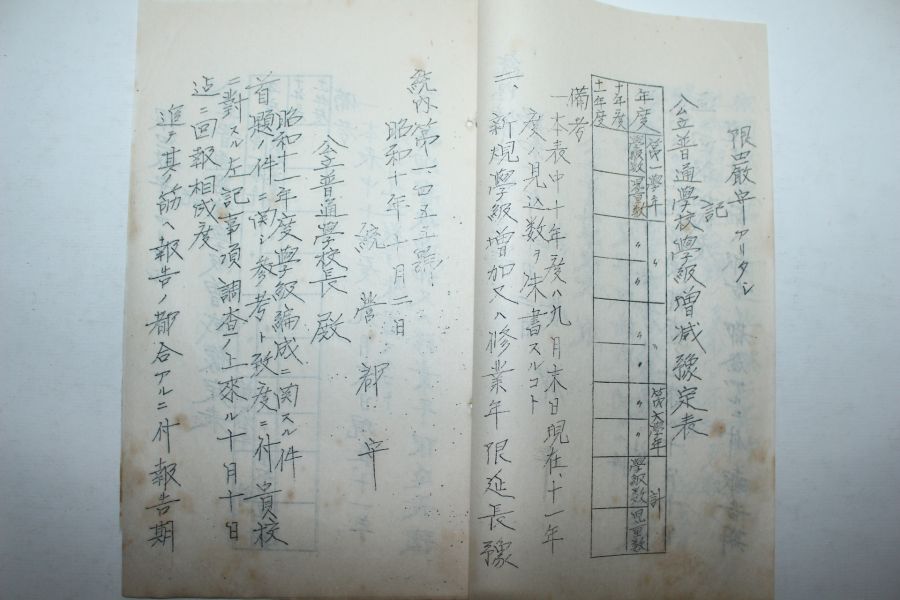 限嚴守アリタシ
記
公立普通學校學級增減豫定表
年度 第一學年 〃 〃 第六學年 計
學級數 兒童數 〃 〃 〃 〃 〃 〃 學級數 兒童數
十年度
十一年度
備考
一、本表中十年度ハ九月末日現在、十一年
度ハ見込数ヲ朱書スルコト
二、新規學級增加又ハ修業年限延長豫
統內第一四五五號
昭和十年十月二日
統營郡守
公立普通學校長殿
昭和十一年度學級編成ニ関スル件
首題ノ件ニ関シ參考ト致度ニ付貴校
ニ對スル左記事項調査ノ上來ル十月十日
迄ニ回報相成度
追テ其ノ筋ヘ報告ノ都合アルニ付報告期